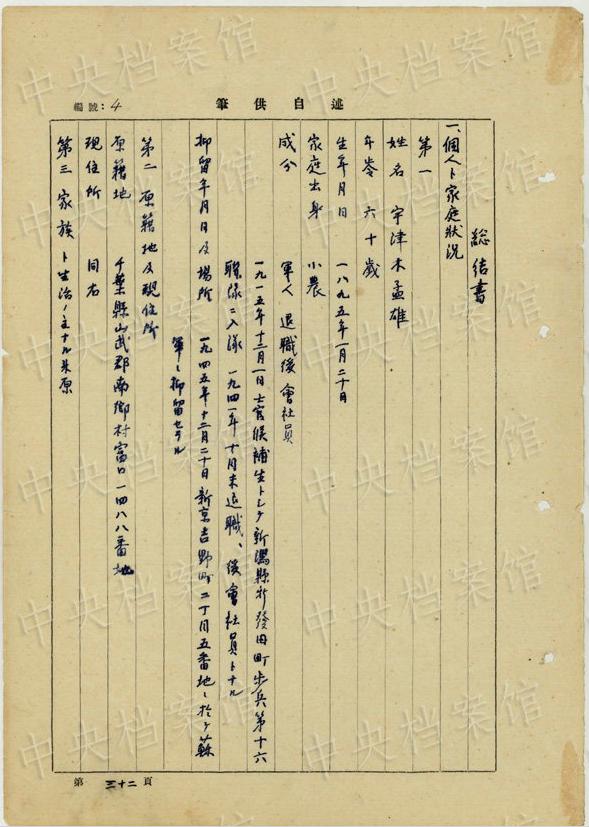 述自供筆
編號:4
総結書
一、個人ト家庭狀況
第一
姓名 宇津木孟雄
年令 六十歲
生年月日 一八九五年一月二十日
家庭出身 小農
成分 軍人 退職後會社員
一九一五年十二月一日士官候補生トシテ新潟縣新發田町步兵第十六
聯隊ニ入隊 一九四一年十月末退職、後會社員トナル
抑留年月日及場所 一九四五年十二月二十日新京吉野町二丁目五番地ニ於テ蘇
軍ニ抑留セラル
第二 原籍地及現住所
原籍地 千葉縣山武郡南鄉村富口一四八八番地
現住所 同右
第三 家族ト生活ノ主ナル來源
第三十二頁
中央档案馆